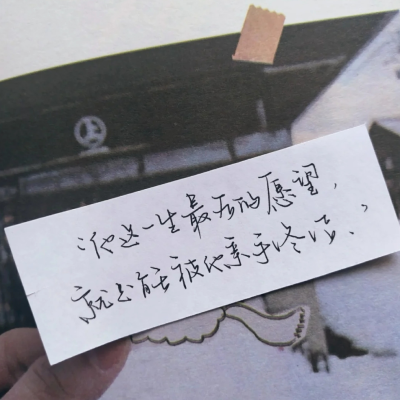 “他这一生最后的愿望,
就是能被他亲手终结.”